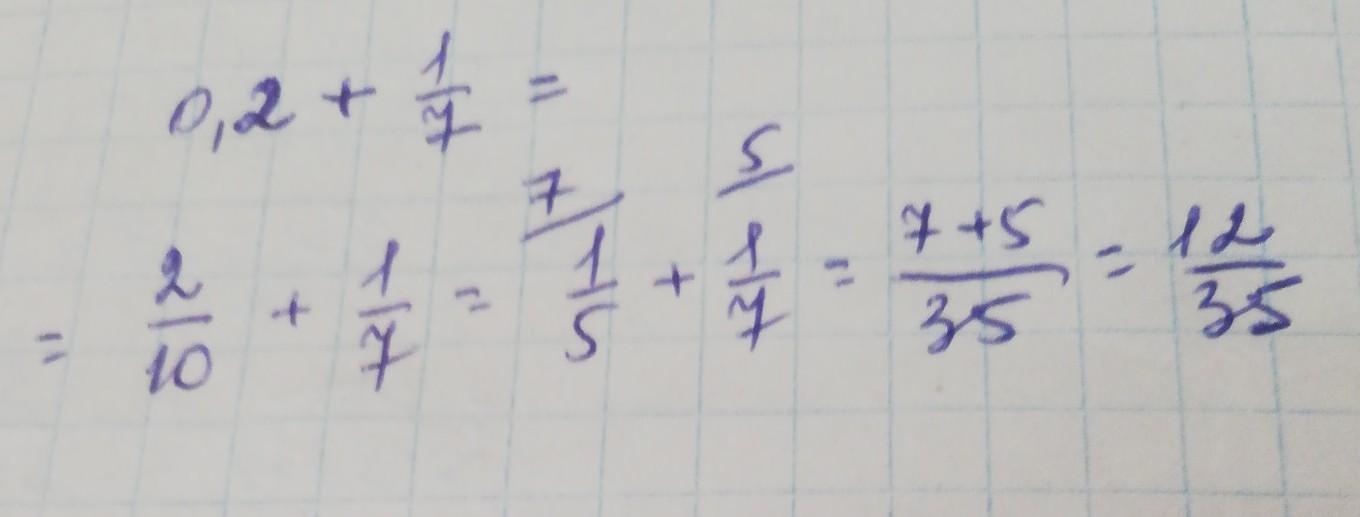 0,2 + 1/7 =
7 5
= 2/10 + 1/7 = 1/5 + 1/7 = 7+5/35 = 12/35